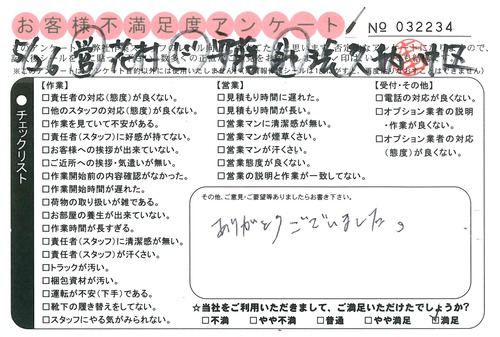 お客様不満足度アンケート
No 032234
チェックリスト
【作業】
□責任者の対応(態度)が良くない。
□他のスタッフの対応(態度)が良くない。
□作業を見ていて不安がある。
□責任者(スタッフ)に好感が持てない。
□お客様への挨拶が出来ていない。
□ご近所への挨拶・気遣いが無い。
□作業開始前の内容確認がなかった。
□作業開始時間が遅れた。
□荷物の取り扱いが雑である。
□お部屋の養生が出来ていない。
□作業時間が長すぎる。
□責任者(スタッフ)に清潔感が無い。
□責任者(スタッフ)が汗くさい。
□トラックが汚い。
□梱包資材が汚い。
□運転が不安(下手)である。
□靴下の履き替えをしてない。
□スタッフにやる気がみられない。
【営業】
□見積もり時間に遅れた。
□見積もり時間が長い。
□営業マンに清潔感が無い。
□営業マンが煙草くさい。
□営業マンが汗くさい。
□営業態度が良くない。
□営業の説明と作業が一致してない。
【受付・その他】
□電話の対応が良くない。
□オプション業者の説明
・作業が良くない。
□オプション業者の対応
(態度)が良くない。
その他、ご意見・ご要望等ありましたらお書き下さい。
ありがとうございました。
☆当社をご利用いただきまして、ご満足いただけたでしょうか?
□不満 □やや不満 □普通 □やや満足 □満足